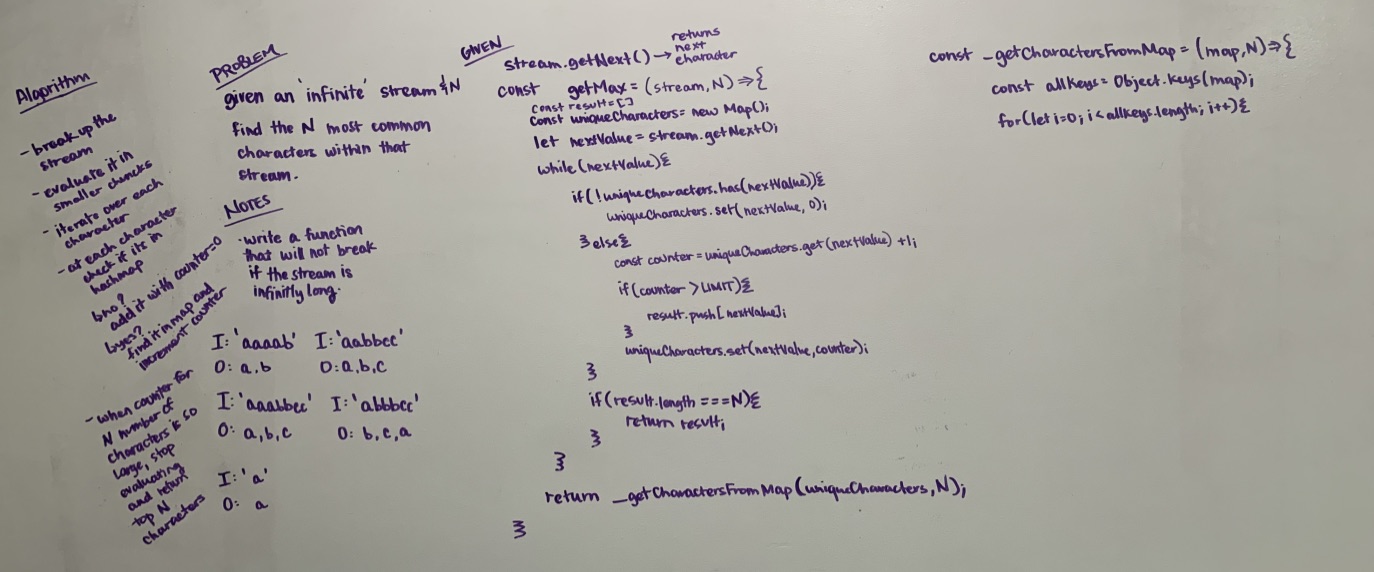 Algorithm
- break up the
stream
- evaluate it in
smaller chuncks
- iterate over each
character
- at each character
check if its in
hashmap
no?
add it with counter=0
yes?
find it in map and
increment counter
- when counter for
N number of
characters is so
large, stop
evaluating
and return
top N
characters
PROBLEM
given an 'infinite' stream & N
find the N most common
characters within that
stream.
NOTES
· write a function
that will not break
if the stream is
infinitly long.
I: 'aaaab' I: 'aabbcc'
O: a,b O: a,b,c
I: 'aaabbcc' I: 'abbbcc'
O: a,b,c O: b,c,a
I: 'a'
O: a
GIVEN
stream.getNext() → returns
next
character
const getMax = (stream, N) => {
const result = []
const uniqueCharacters = new Map();
let nextValue = stream.getNext();
while (nextValue) {
if (!uniqueCharacters.has(nextValue)) {
uniqueCharacters.set(nextValue, 0);
} else {
const counter = uniqueCharacters.get(nextValue) + 1;
if (counter > LIMIT) {
result.push[nextValue];
}
uniqueCharacters.set(nextValue, counter);
}
if (result.length === N) {
return result;
}
}
return _getCharactersFromMap(uniqueCharacters, N);
}
const _getCharactersFromMap = (map, N) => {
const allKeys = Object.keys(map);
for (let i=0; i < allkeys.length; i++) {